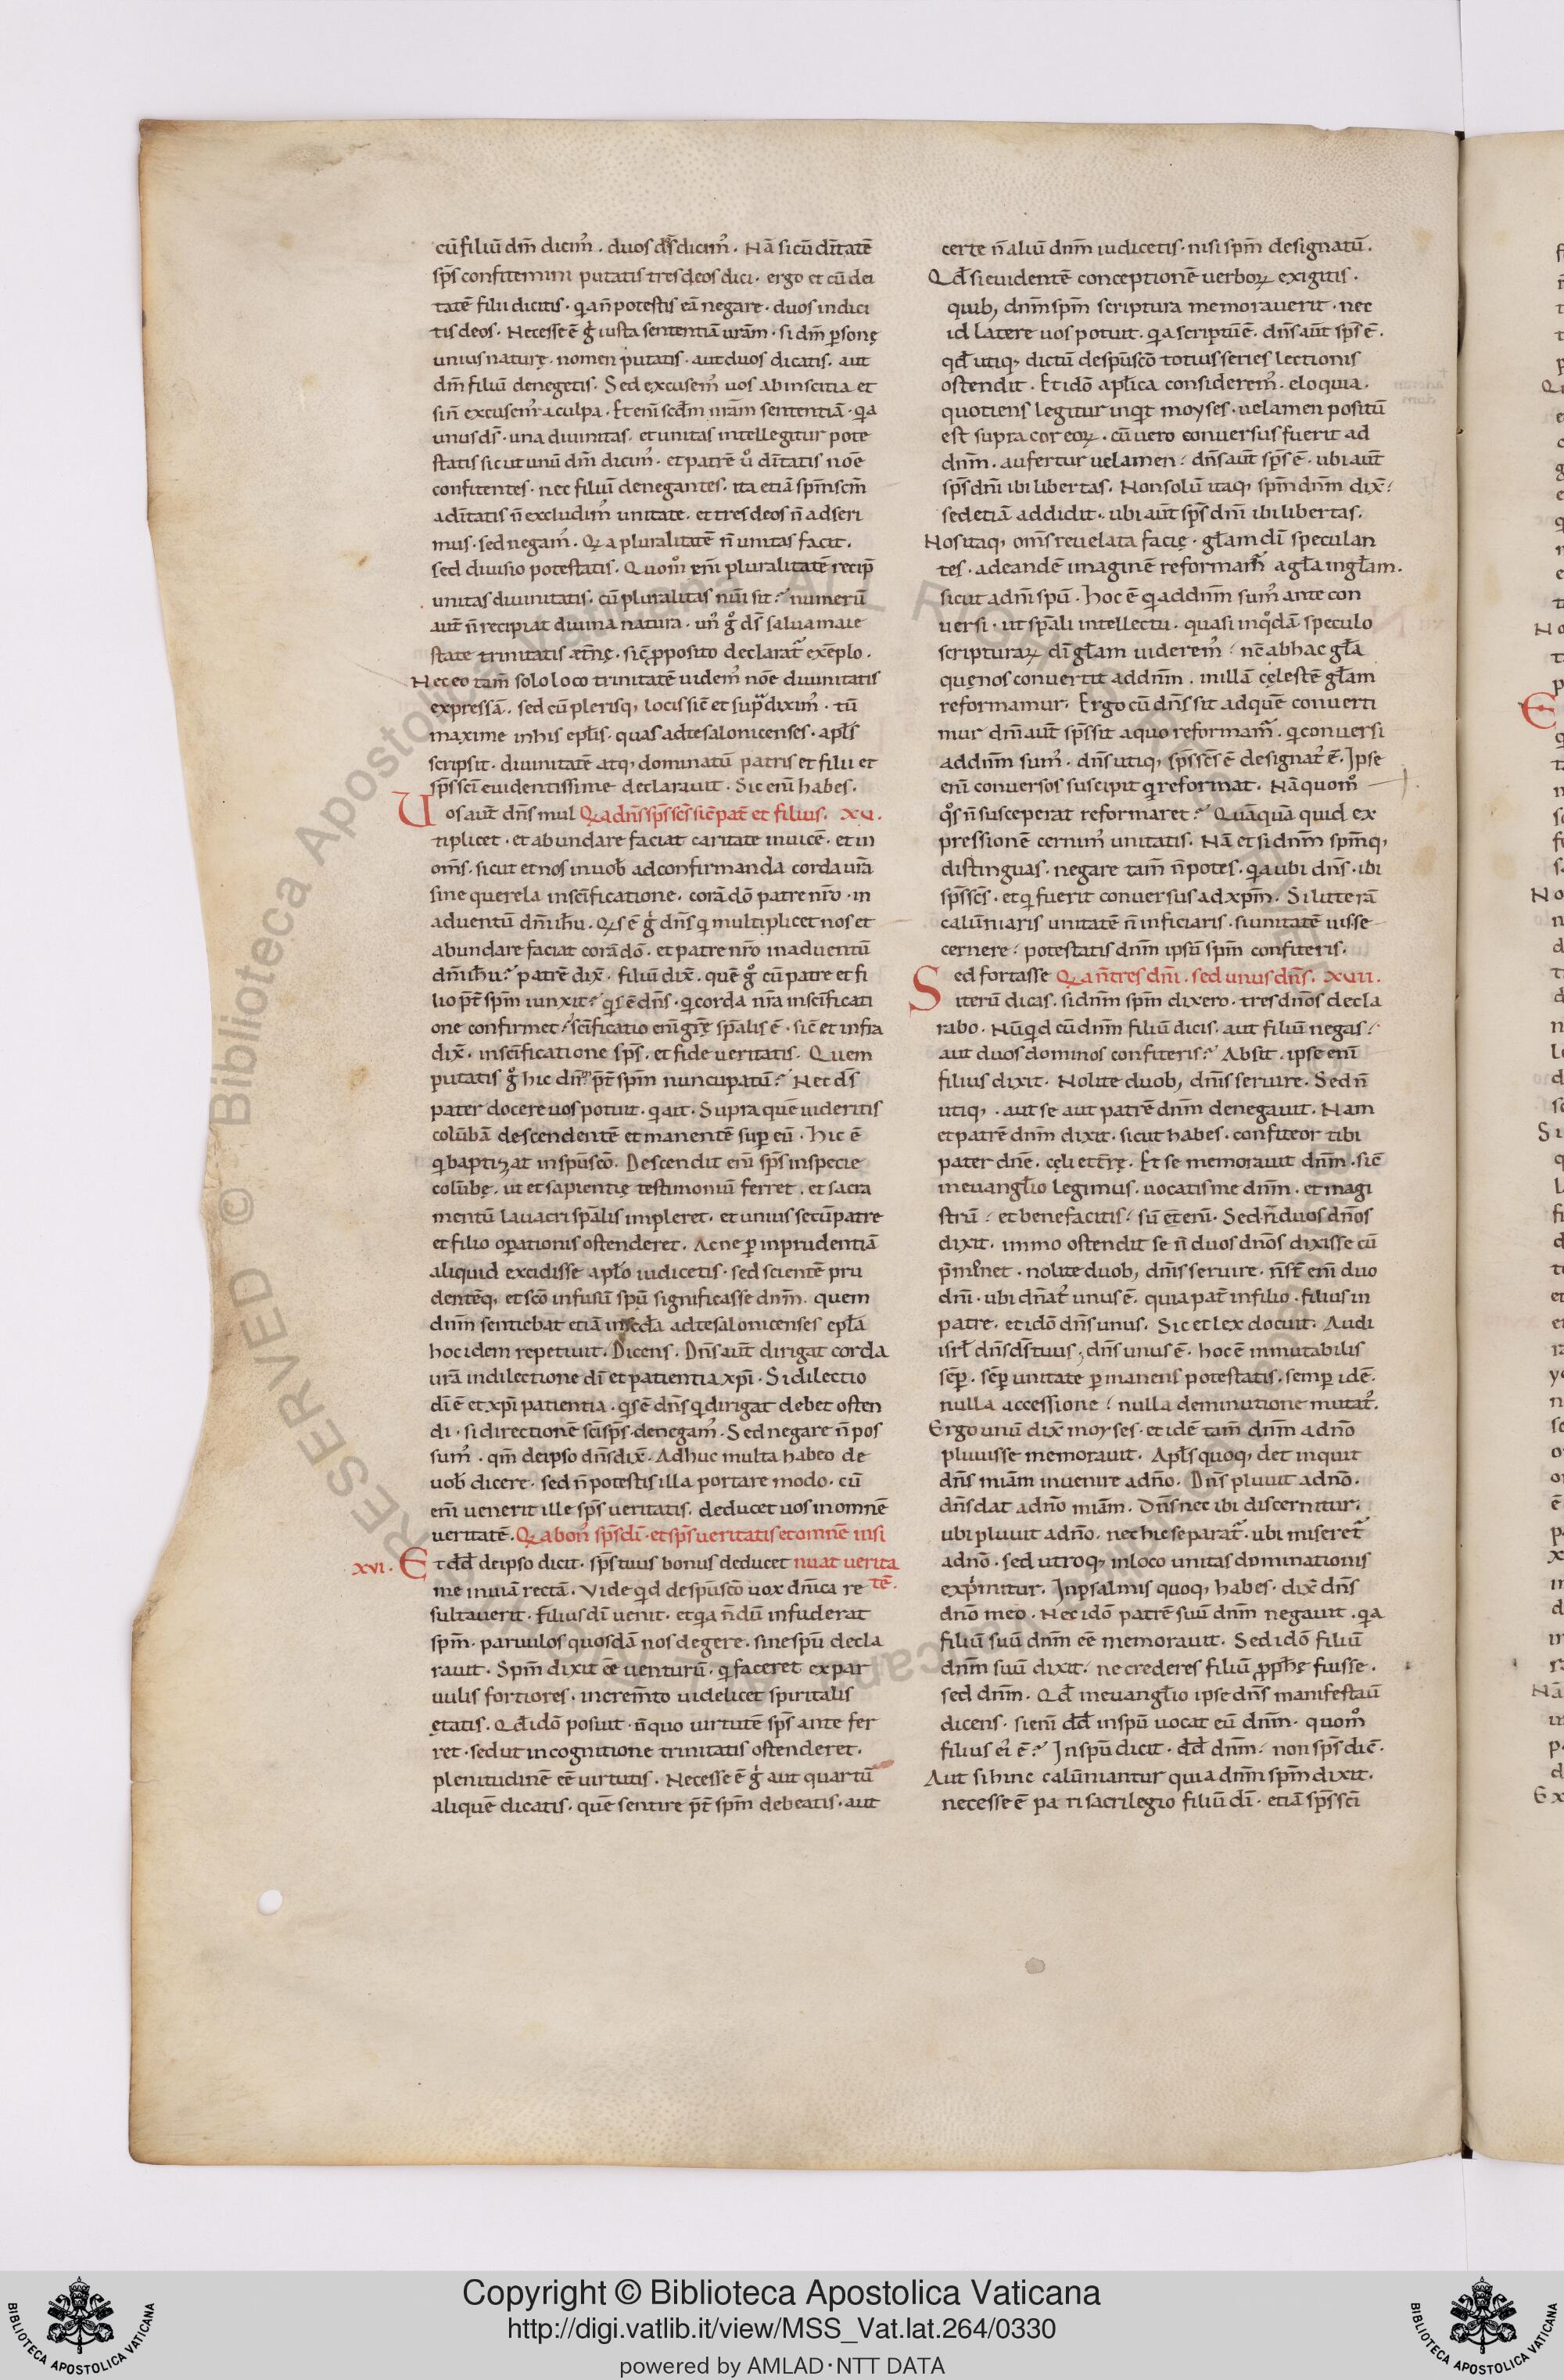 cū filiū dm̄ dicim᷒. duos dōs dicim᷒. Nā si cū dītatē
sp̄s confitemini putatis tres deos dici. ergo et cū dei
tatē filii dicitis. qa n̄ potestis eā negare. duos indici
tis deos. Necesse ē g̊ iusta sententiā urām. si dm̄ ꝑsonę
unius naturę. nomen putatis. aut duos dicatis. aut
dm̄ filiū denegetis. Sed excusem᷒ uos ab inscitia et
si n̄ excusem᷒ a culpa. Et enī scd̄m nrām sententiā. qa
unus ds̄. una diuinitas. et unitas intellegitur pote
statis sicut unū dm̄ dicim᷒. et patrē uͦ dītatis noē
confitentes. nec filiū denegantes. ita etiā spm̄ scm̄
a dītatis n̄ excludim᷒ unitate. et tres deos n̄ adseri
mus. sed negam᷒. Qa pluralitatē n̄ unitas facit.
sed diuisio potestatis. Quom̊ enī pluralitatē recip̄
unitas diuinitatis. cū pluralitas nūi sit? numerū
aut̄ n̄ recipiat diuina natura. un᷒ gͦ ds̄ salua maie
state trinitatis ęt̄nę. sic̄ ꝓposito declarat᷑ exēplo.
Nec eo tam̄ solo loco trinitatē uidem᷒ noē diuinitatis
expressā. sed cū plerisq, locis sic̄ et supᷓ diximus᷒. tū
maxime in his epl̄is. quas ad tesalonicenses. apl̄s
scripsit. diuinitatē atq, dominatū patris et filii et
sp̄s sc̄i euidentissime declarauit. Sic enī habes.
Uos aut̄ dn̄s mul Qa dn̄s sp̄s sc̄s sic̄ pat̄ et filius. XV.
tiplicet. et abundare faciat caritate inuicē. et in
om̄s. sicut et nos in uob̄ ad confirmanda corda ur̄a
sine querela in sc̄ificatione. corā dō patre nr̄o. in
aduentū dn̄i ih̄u. Qs ē g̊ dn̄s q multiplicet nos et
abundare faciat corā dō. et patre nr̄o in aduentū
dn̄i ih̄u? patrē dix̄. filiū dix̄. quē gͦ cū patre et fi
lio p̄t̄ spm̄ iunxit? qs ē dn̄s. q corda nr̄a in sc̄ificati
one confirmet? sc̄ificatio enī gr̄ę sp̄alis ē. sic̄ et infra
dix̄. in sc̄ificatione sp̄s. et fide ueritatis. Quem
putatis gͦ hic dn̄m p̄t̄ spm̄ nuncupatū? Nec ds̄
pater docere uos potuit. q ait. Supra quē uideritis
colūbā descendentē et manentē suꝑ eū. Hic ē
q baptizat in spū scō. Descendit enī sp̄s in specie
colūbę. ut et sapientię testimoniū ferret. et sacra
mentū lauacri sp̄alis impleret. et unius se cū patre
et filio oꝑationis ostenderet. Ac ne ꝑ inprudentiā
aliquid excidisse apl̄o iudicetis. sed scientē pru
dentēq, et scō infusū spū significasse dnm̄. quem
dnm̄ sentiebat etiā in scd̄a ad tesalonicenses epl̄a
hoc idem repetiuit. Dicens. Dn̄s aut̄ dirigat corda
urā in dilectione dī et patientia xp̄i. Si dilectio
dī ē et xp̄i patientia. qs ē dn̄s q dirigat debet osten
di. si directionē sc̄i sp̄s denegam᷒. Sed negare n̄ pos
sum᷒. qm̄ de ipso dn̄s dix̄. Adhuc multa habeo de
uob̄ dicere. sed n̄ potestis illa portare modo. cū
enī uenerit ille sp̄s ueritatis. deducet uos in omnē
ueritatē. Qa bon᷒ sp̄s dī. et sp̄s ueritatis et omnē insi
XVI. Et dd̄ de ipso dicit. sp̄s tuus bonus deducet nuat uerita
me in uiā rectā. Vide qd de spū scō uox dn̄ica re tē.
sultauerit. filius dī uenit. et qa n̄dū infuderat
spm̄. paruulos quosdā nos degere. sine spū decla
rauit. Spm̄ dixit eē uenturū. q faceret ex par
uulis fortiores. increm̄to uidelicet spiritalis
ętatis. Qd̄ idō posuit. n̄ quo uirtutē sp̄s ante fer
ret. sed ut in cognitione trinitatis ostenderet.
plenitudinē eē uirtutis. Necesse ē g̊ aut quartū
aliquē dicatis. quē sentire p̄t̄ spm̄ debeatis. aut
certe n̄ aliū dnm̄ iudicetis. nisi spm̄ designatū.
Qd̄ si euidentē conceptionē uerboꝝ exigitis.
quib, dnm̄ spm̄ scriptura memorauerit. nec
id latere uos potuit. qa scriptū ē. dn̄s aut̄ sp̄s ē.
qd̄ utiq, dictū de spū scō totius series lectionis
ostendit. Et idō apl̄ica considerem᷒. eloquia.
quotiens legitur inqt moyses. uelamen positū
est supra cor eoꝝ. cū uero conuersus fuerit ad
dnm̄. aufertur uelamen. dn̄s aut̄ sp̄s ē. ubi aut̄
sp̄s dn̄i ibi libertas. Non solū itaq, spm̄ dnm̄ dix̄.
sed etiā addidit. ubi aut̄ sp̄s dn̄i ibi libertas.
Nos itaq, om̄s reuelata facię. gl̄am dī speculan
tes. ad eandē imaginē reformam᷑ a gl̄a in gl̄am.
sicut a dn̄i spū. Hoc ē q ad dnm̄ sum᷒ ante con
uersi. ut sp̄ali intellectu. quasi in qͦdā speculo
scripturaꝝ dī gl̄am uiderem᷒. nc̄ ab hac gl̄a
quę nos conuertit ad dnm̄. in illā cęlestē gl̄am
reformamur. Ergo cū dn̄s sit ad quē conuerti
mur dn̄i aut̄ sp̄s sit a quo reformam᷑. q conuersi
ad dnm̄ sum᷒. dn̄s utiq, sp̄s sc̄s ē designat᷒ ē. Ipse
enī conuersos suscipit q reformat. Nā quom̊
qͦs n̄ susceperat reformaret? Quāquā quid ex
pressionē cernim᷒ unitatis. Nā et si dnm̄ spm̄q,
distinguas. negare tam̄ n̄ potes. qa ubi dn̄s. ibi
sp̄s sc̄s. et q fuerit conuersus ad xpm̄. Si litterā
calūniaris unitatē n̄ inficiaris. si unitatē uisse
cernere. potestatis dnm̄ ipsū spm̄ confiteris.
Sed fortasse Qa n̄ tres dn̄i. sed unus dn̄s. XVII.
iterū dicas. si dnm̄ spm̄ dixero. tres dn̄os decla
rabo. Nūqd cū dnm̄ filiū dicis. aut filiū negas?
aut duos dominos confiteris? Absit. ipse enī
filius dixit. Nolite duob, dn̄is seruire. Sed n̄
utiq,. aut se aut patrē dnm̄ denegauit. Nam
et patrē dnm̄ dixit. sicut habes. confiteor tibi
pater dn̄e. cęli et t̄rę. Et se memorauit dnm̄. sic̄
in euangl̄io legimus. uocatis me dnm̄. et magi
strū. et bene facitis. sū et enī. Sed n̄ duos dn̄os
dixit. immo ostendit se n̄ duos dn̄os dixisse cū
p̄monet. nolite duob, dn̄is seruire. n̄ st̄ enī duo
dn̄i. ubi dn̄at᷒ unus ē. quia pat̄ in filio. filius in
patre. et idō dn̄s unus. Sic et lex docuit. Audi
isrl̄ dn̄s ds̄ tuus, dn̄s unus ē. hoc ē inmutabilis
sēꝑ. sēꝑ unitate ꝑmanens potestatis. semꝑ idē.
nulla accessione. nulla deminutione mutat᷒.
Ergo unū dix̄ moyses. et idē tam̄ dnm̄ a dn̄o
pluuisse memorauit. Apl̄s quoq, det inquit
dn̄s miā̄m inuenire a dn̄o. Dn̄s pluuit a dn̄o.
dn̄s dat a dn̄o miā̄m. Dn̄s nec ibi discernitur.
ubi pluuit a dn̄o. nec hic separat᷑. ubi miseret᷑
a dn̄o. sed utroq, in loco unitas dominationis
exp̍mitur. In psalmis quoq, habes. dix̄ dn̄s
dn̄o meo. Nec idō patrē suū dnm̄ negauit. qa
filiū suū dnm̄ eē memorauit. Sed idō filiū
dnm̄ suū dixit. ne crederes filiū ꝓph̄ę fuisse.
sed dnm̄. Qd̄ in euangl̄io ipse dn̄s manifestaū
dicens. si enī dd̄ in spū uocat eū dnm̄. quom̊
filius ei᷒ ē? In spū dicit. dd̄ dnm̄. non sp̄s dīc̄.
Aut si hinc calūniantur quia dnm̄ spm̄ dixit.
necesse ē pari sacrilegio filiū dī. etiā sp̄s sc̄i
RESERVED © Biblioteca Apostolica Vaticana ALL RIGHTS
Copyright © Biblioteca Apostolica Vaticana
http://digi.vatlib.it/view/MSS_Vat.lat.264/0330
powered by AMLAD·NTT DATA
BIBLIOTECA APOSTOLICA VATICANA
BIBLIOTECA APOSTOLICA VATICANA